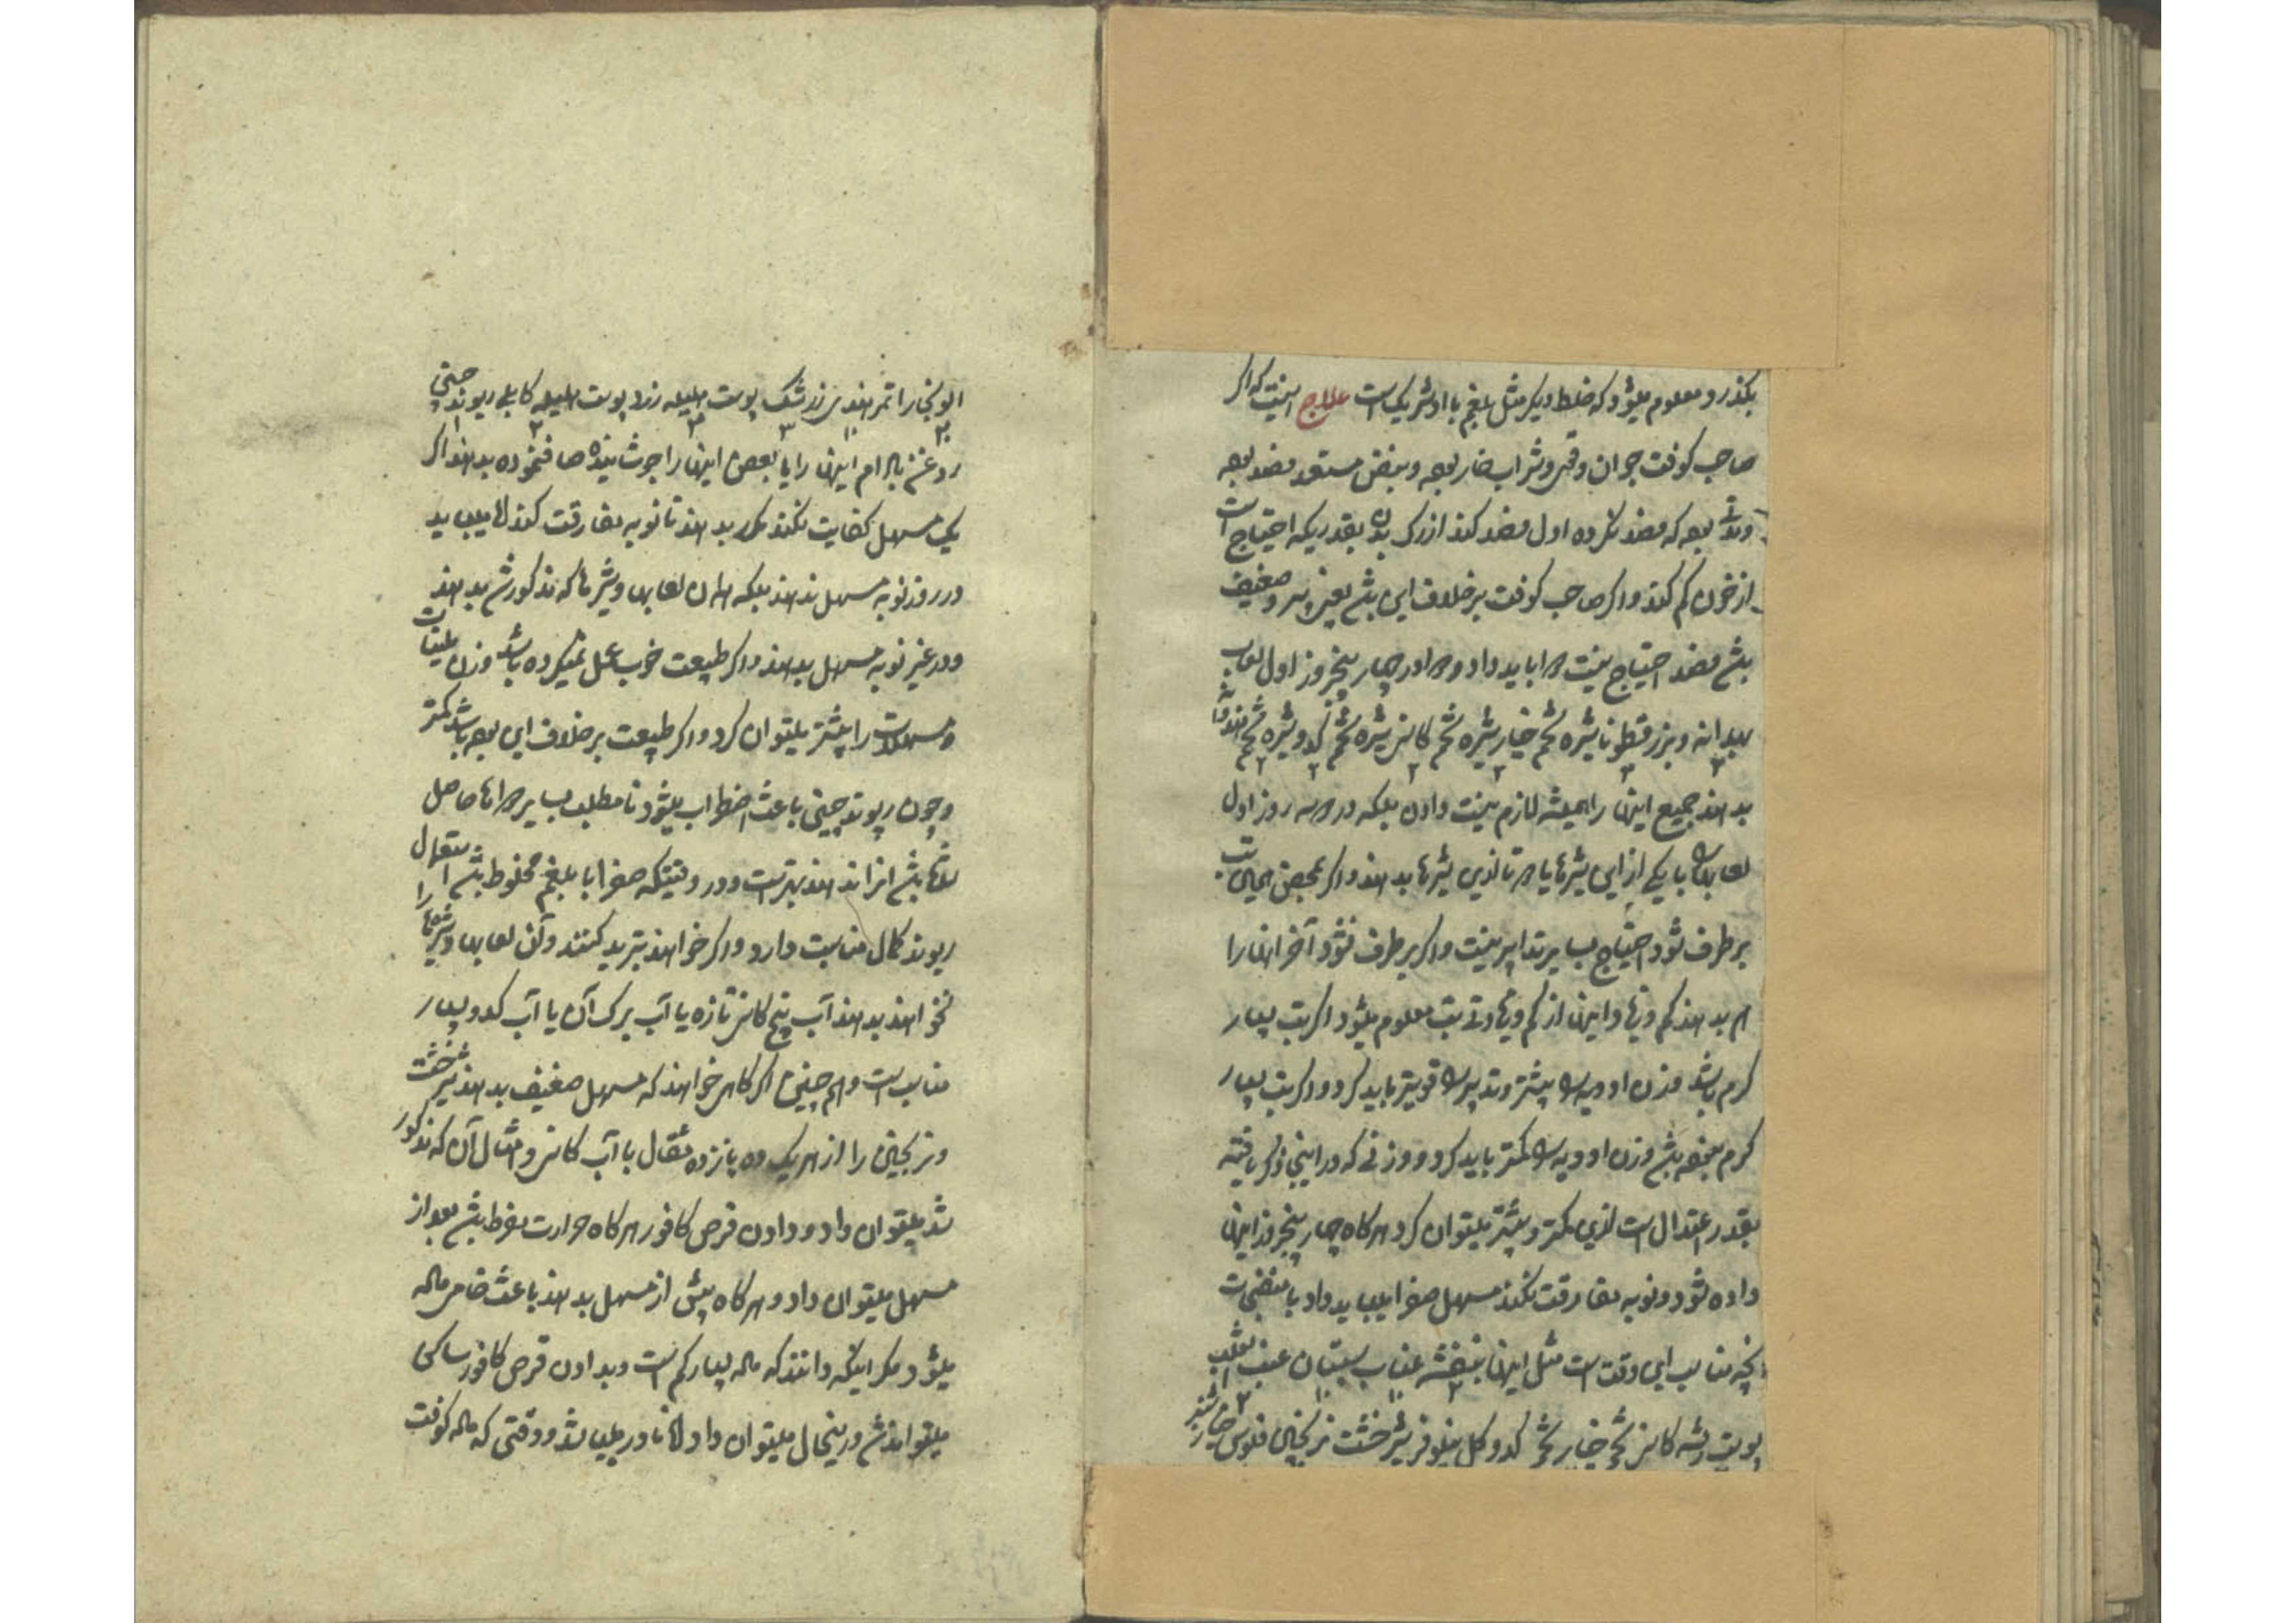 بکذرد و معلوم میشود که خلط دیکر مثل بلغم با او شریک است علاج اینست که اکر
صاحب کوفت جوان و قوی و شراب خار بود و بنفس مستعد فصد بود
و مدتی بود که فصد نکرده اول فصد کنند از رک بدن بقدریکه احتیاج است
از خون کم کنند و اکر صاحب کوفت بر خلاف این باشد یعنی پیر و ضعیف
باشد فصد احتیاج نیست دوا باید داد و دوا در چهار پنجروز اول لعاب
بهدانه و بزر قطونا شیره تخم خیار شیره تخم کاسنی شیره تخم کدو شیره تخم هندوانه
۳ ۳ ۲ ۲ ۲ ۲
بدهند جمیع اینها را همیشه لازم نیست دادن بلکه در دو سه روز اول
لعابها با یکی از این شیرها یا دو تا ازین شیرها بدهند و اکر بمحض همین تب
بر طرف شود احتیاج بسایر تدابیر نیست و اکر بر طرف نشود آخر اینها را
هم بدهند کم و زیاد و اینها از کم و زیادتی تب معلوم میشود اکر تب بسیار
کرم باشد وزن ادویها بیشتر و تدبیرها قویتر باید کرد و اکر تب بسیار
کرم نبوده باشد وزن ادویها کمتر باید کرد و وزنی که در اینجا ذکر یافته
بقدر اعتدال است ازین کمتر و بیشتر میتوان کرد هرکاه چهار پنجروز اینها
داده شود و نوبه مفارقت نکند مسهل صفرا میباید داد با منضجات
آنچه مناسب این وقت است مثل اینها بنفشه عناب سپستان عنب الثعلب
۲ ۱۰ ۱۰ ۲
پوست ریشه کاسنی تخم خیار تخم کدو کل نیلوفر شیرخشت ترنجبین فلوس خیار شنبر
الو بخارا تمر هندی زرشک پوست هلیله زرد پوست هلیله کابلی ریوند چینی
۲۰ ۱۰ ۳ ۳ ۲ ۱
روغن بادام اینها را یا بعضی اینها را جوشانیده صاف نموده بدهند اکر
یک مسهل کفایت نکند مکرر بدهند تا نوبه مفارقت کند اما میباید
در روز نوبه مسهل ندهند بلکه همان لعابها و شیرها که مذکور شد بدهند
و در غیر نوبه مسهل بدهند و اکر طبیعت خوب عمل نمیکرده باشد وزن ملینات
و مسهلات را بیشتر میتوان کرد و اکر طبیعت بر خلاف این بوده باشد کمتر
و چون ریوند چینی باعث اضطراب میشود تا مطلب بسایر دواها حاصل
باشد آنرا ندهند بهتر است و در وقتیکه صفرا با بلغم مخلوط باشد استعمال
ریوند کمال مناسبت دارد و اکر خواهند تبرید کنند و آن لعابها و شیرها را
نخواهند بدهند آب بیخ کاسنی تازه یا آب برک آن یا آب کدو بسیار
مناسب است و هم چنین اکر کاهی خواهند که مسهل ضعیف بدهند شیرخشت
و ترنجبین را از هر یک ده پانزده مثقال با آب کاسنی و امثال آن که مذکور
شد میتوان داد و دادن قرص کافور هرکاه حرارت مفرط باشد بعد از
مسهل میتوان داد و هرکاه پیش از مسهل بدهند باعث خامی ماده
میشود مکر اینکه دانند که ماده بسیار کم است و بدادن قرص کافور ساکن
میتواند شد درینحال میتوان داد اما نادر میباشد و وقتی که ماده کوفت